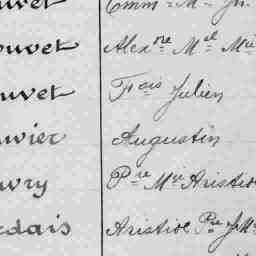 uvet Emm. M. Jn.
ouvet Alexdre Mel Mie
uvet Fçois Julien
uvier Augustin
vry Pre Mie Aristid
edais Aristide Pre J M